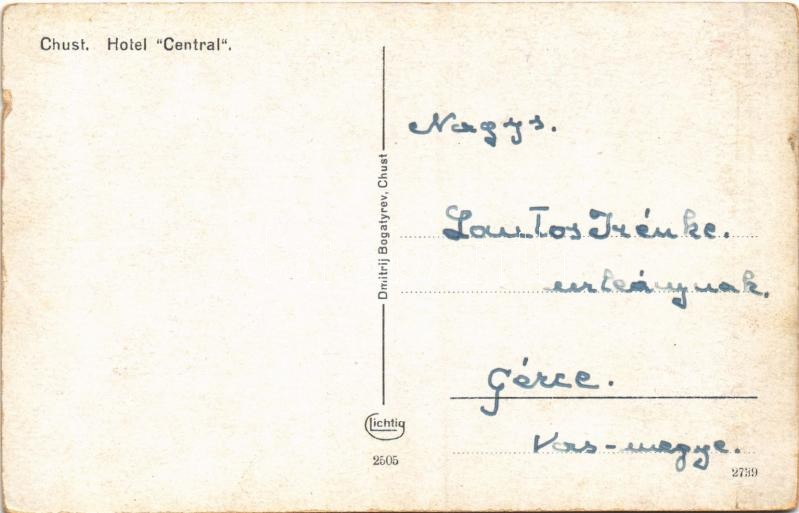 Chust. Hotel "Central".
Dmitrij Bogatyrev, Chust
Lichtig
2505
Nagys.
Lantos Irénke.
urleánynak.
Gérce.
Vas-megye.
2739